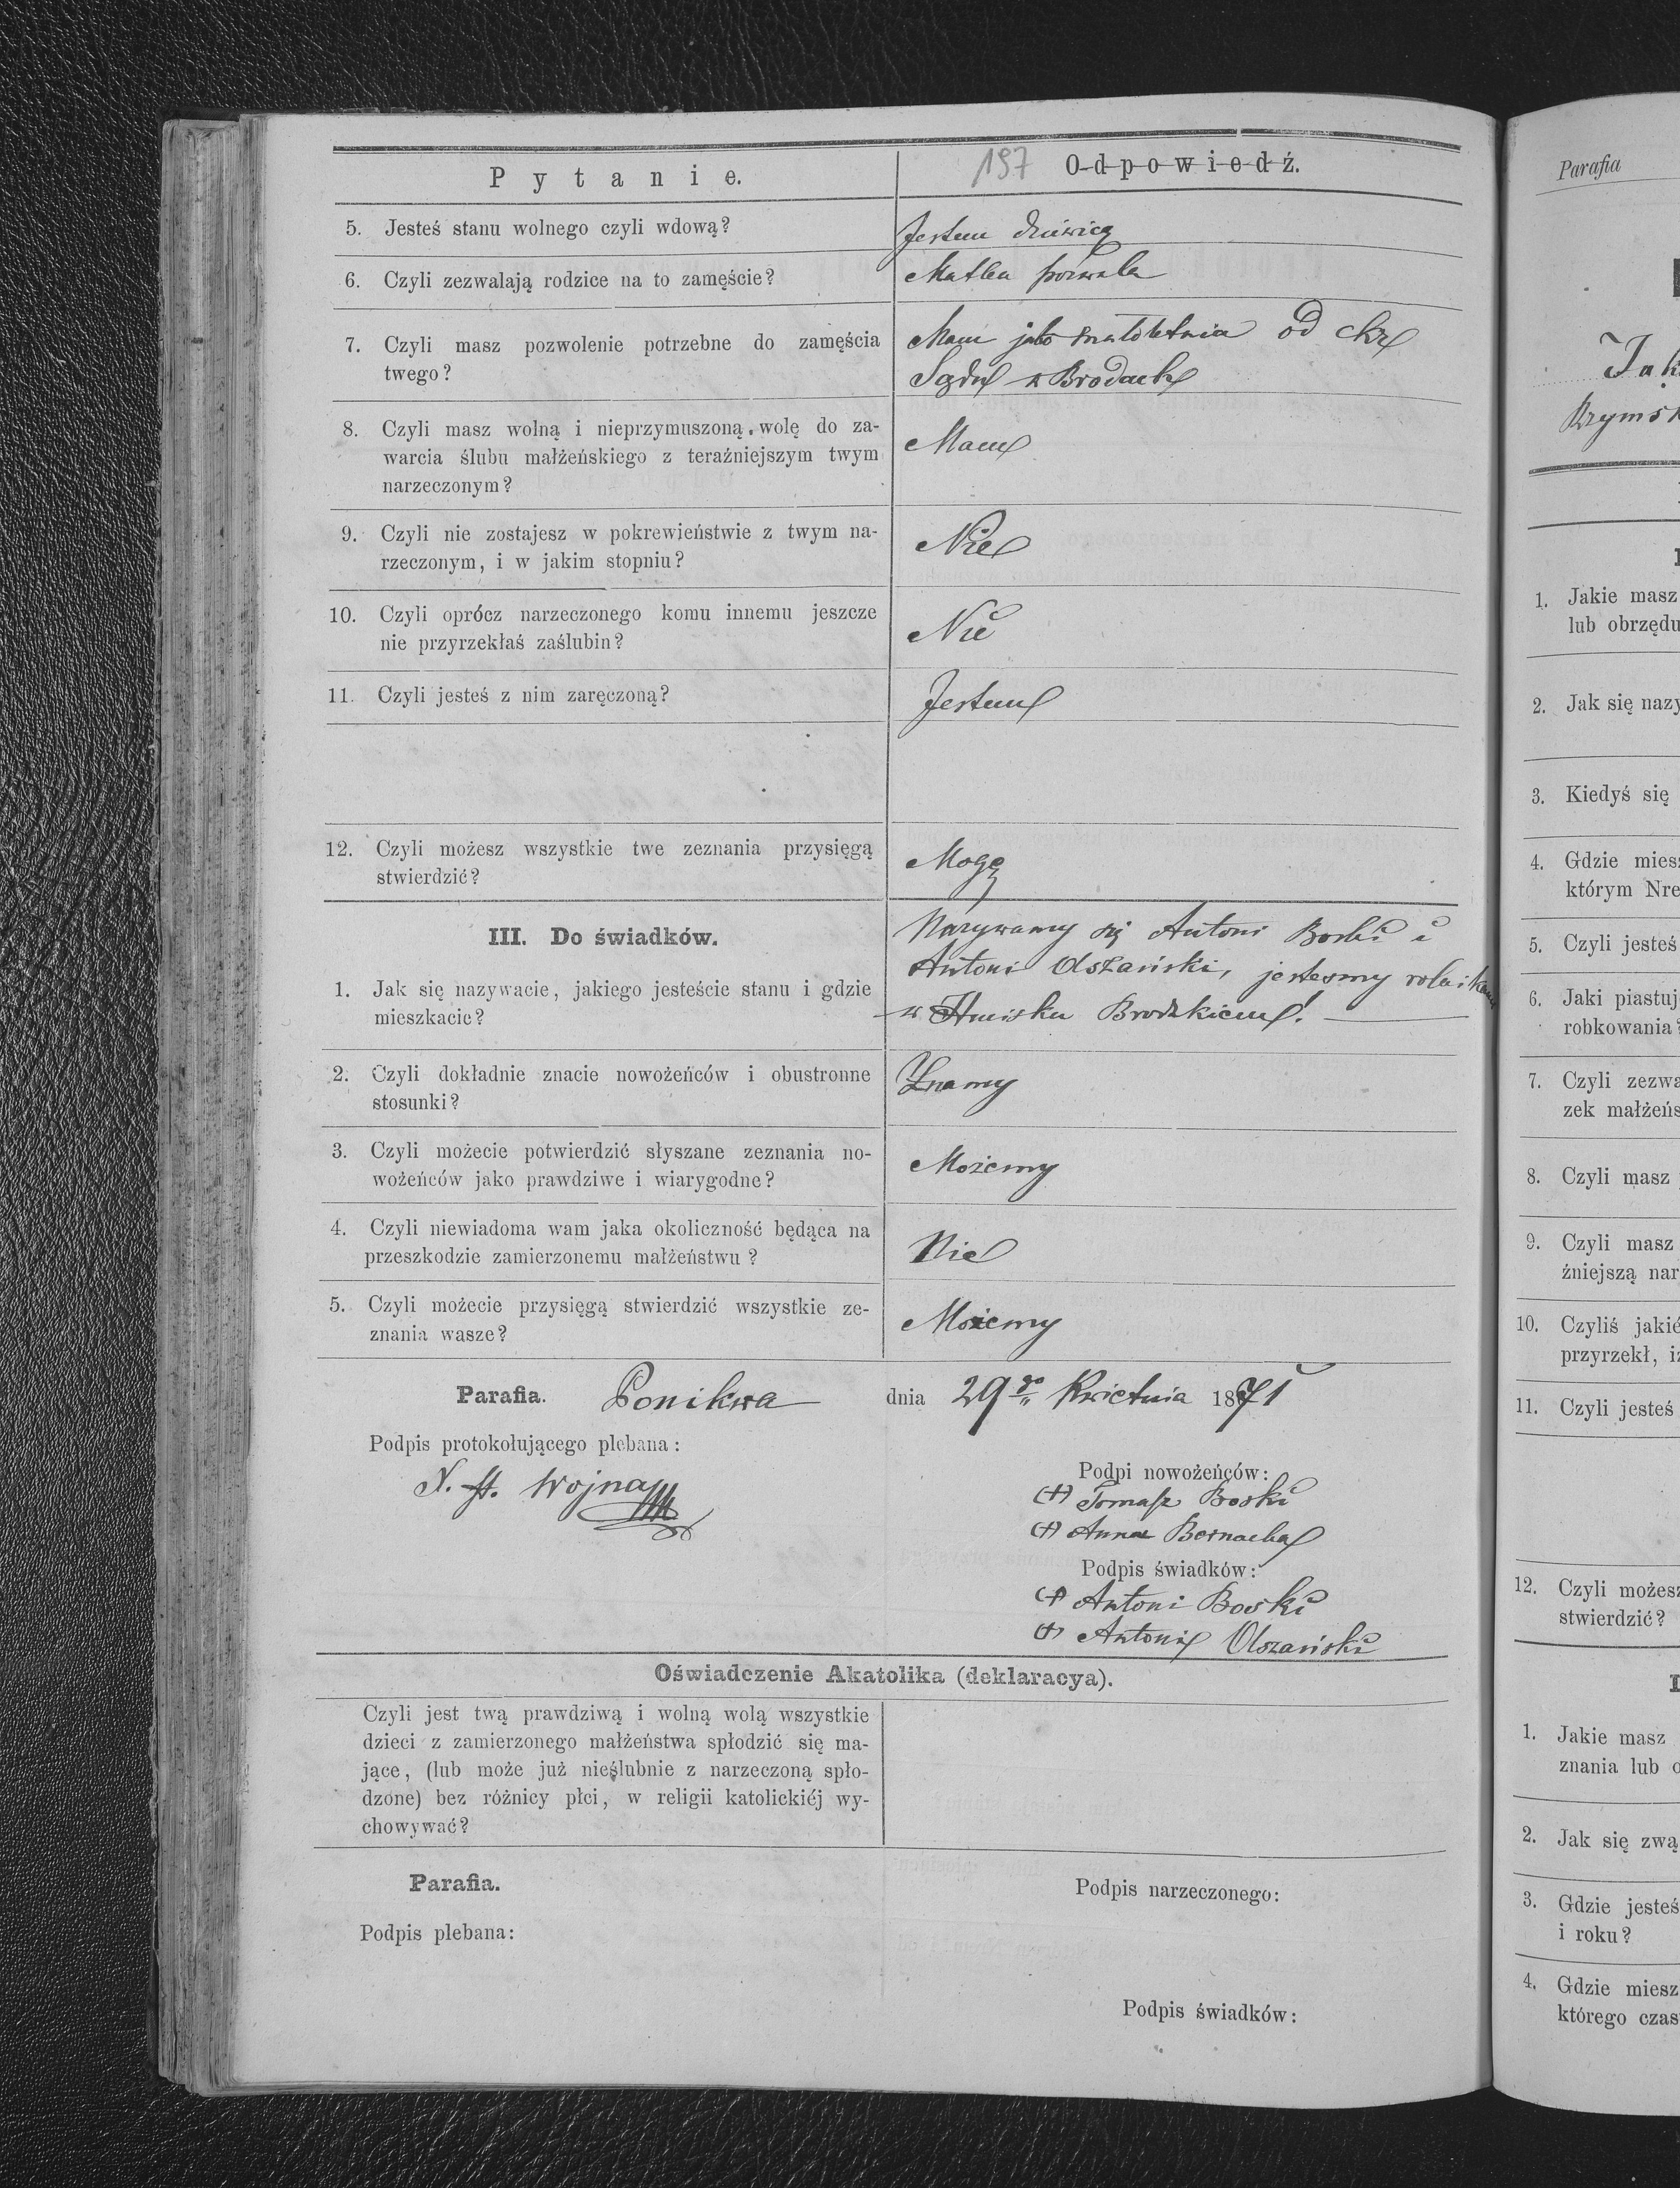 197
Pytanie. Odpowiedź.
5. Jesteś stanu wolnego czyli wdową? Jestem dziewicą
6. Czyli zezwalają rodzice na to zamęście? Matka pozwala
7. Czyli masz pozwolenie potrzebne do zamęścia Mam jako małoletnia od
twego? Sądu w Brodach
8. Czyli masz wolną i nieprzymuszoną wolę do za-
warcia ślubu małżeńskiego z teraźniejszym twym Mam
narzeczonym?
9. Czyli nie zostajesz w pokrewieństwie z twym na- Nie
rzeczonym, i w jakim stopniu?
10. Czyli oprócz narzeczonego komu innemu jeszcze Nie
nie przyrzekłaś zaślubin?
11. Czyli jesteś z nim zaręczoną? Jestem
12. Czyli możesz wszystkie twe zeznania przysięgą Mogę
stwierdzić?
III. Do świadków. Nazywamy się Antoni Boski i
Antoni Olszański, jestesmy rolnikami
1. Jak się nazywacie, jakiego jesteście stanu i gdzie
mieszkacie? w Hucisku Brodzkiem!
2. Czyli dokładnie znacie nowożeńców i obustronne Znamy
stosunki?
3. Czyli możecie potwierdzić słyszane zeznania no- Możemy
wożeńców jako prawdziwe i wiarygodne?
4. Czyli niewiadoma wam jaka okoliczność będąca na Nie
przeszkodzie zamierzonemu małżeństwu?
5. Czyli możecie przysięgą stwierdzić wszystkie ze- Możemy
znania wasze?
Parafia. Ponikwa dnia 29go Kwietnia 1871
Podpis protokołującego plebana:
Wojna
Podpi nowożeńców:
(+) Tomasz Boski
(+) Anna
Podpis świadków:
(+) Antoni Boski
(+) Antoni Olszański
Oświadczenie Akatolika (deklaracya).
Czyli jest twą prawdziwą i wolną wolą wszystkie
dzieci z zamierzonego małżeństwa spłodzić się ma-
jące, (lub może już nieślubnie z narzeczoną spło-
dzone) bez różnicy płci, w religii katolickiéj wy-
chowywać?
Parafia.
Podpis narzeczonego:
Podpis plebana:
Podpis świadków:
Parafia
1. Jakie masz
lub obrzędu
2. Jak się nazy
3. Kiedyś się
4. Gdzie miesz
którym Nre
5. Czyli jesteś
6. Jaki piastuj
robkowania?
7. Czyli zezwa
zek małżeńs
8. Czyli masz
9. Czyli masz
źniejszą nar
10. Czyliś jakié
przyrzekł, iż
11. Czyli jesteś
12. Czyli możesz
stwierdzić?
1. Jakie masz
znania lub o
2. Jak się zwą
3. Gdzie jesteś
i roku?
4. Gdzie miesz
którego czas